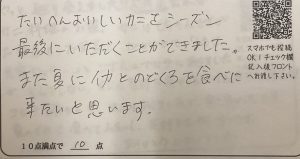 たいへんおいしいカニをシーズン
最後にいただくことができました。
また夏にイカとのどくろを食べに
来たいと思います。
10点満点で 10 点
スマホでも投稿
OK!チェック欄
記入後フロント
へお渡し下さい。